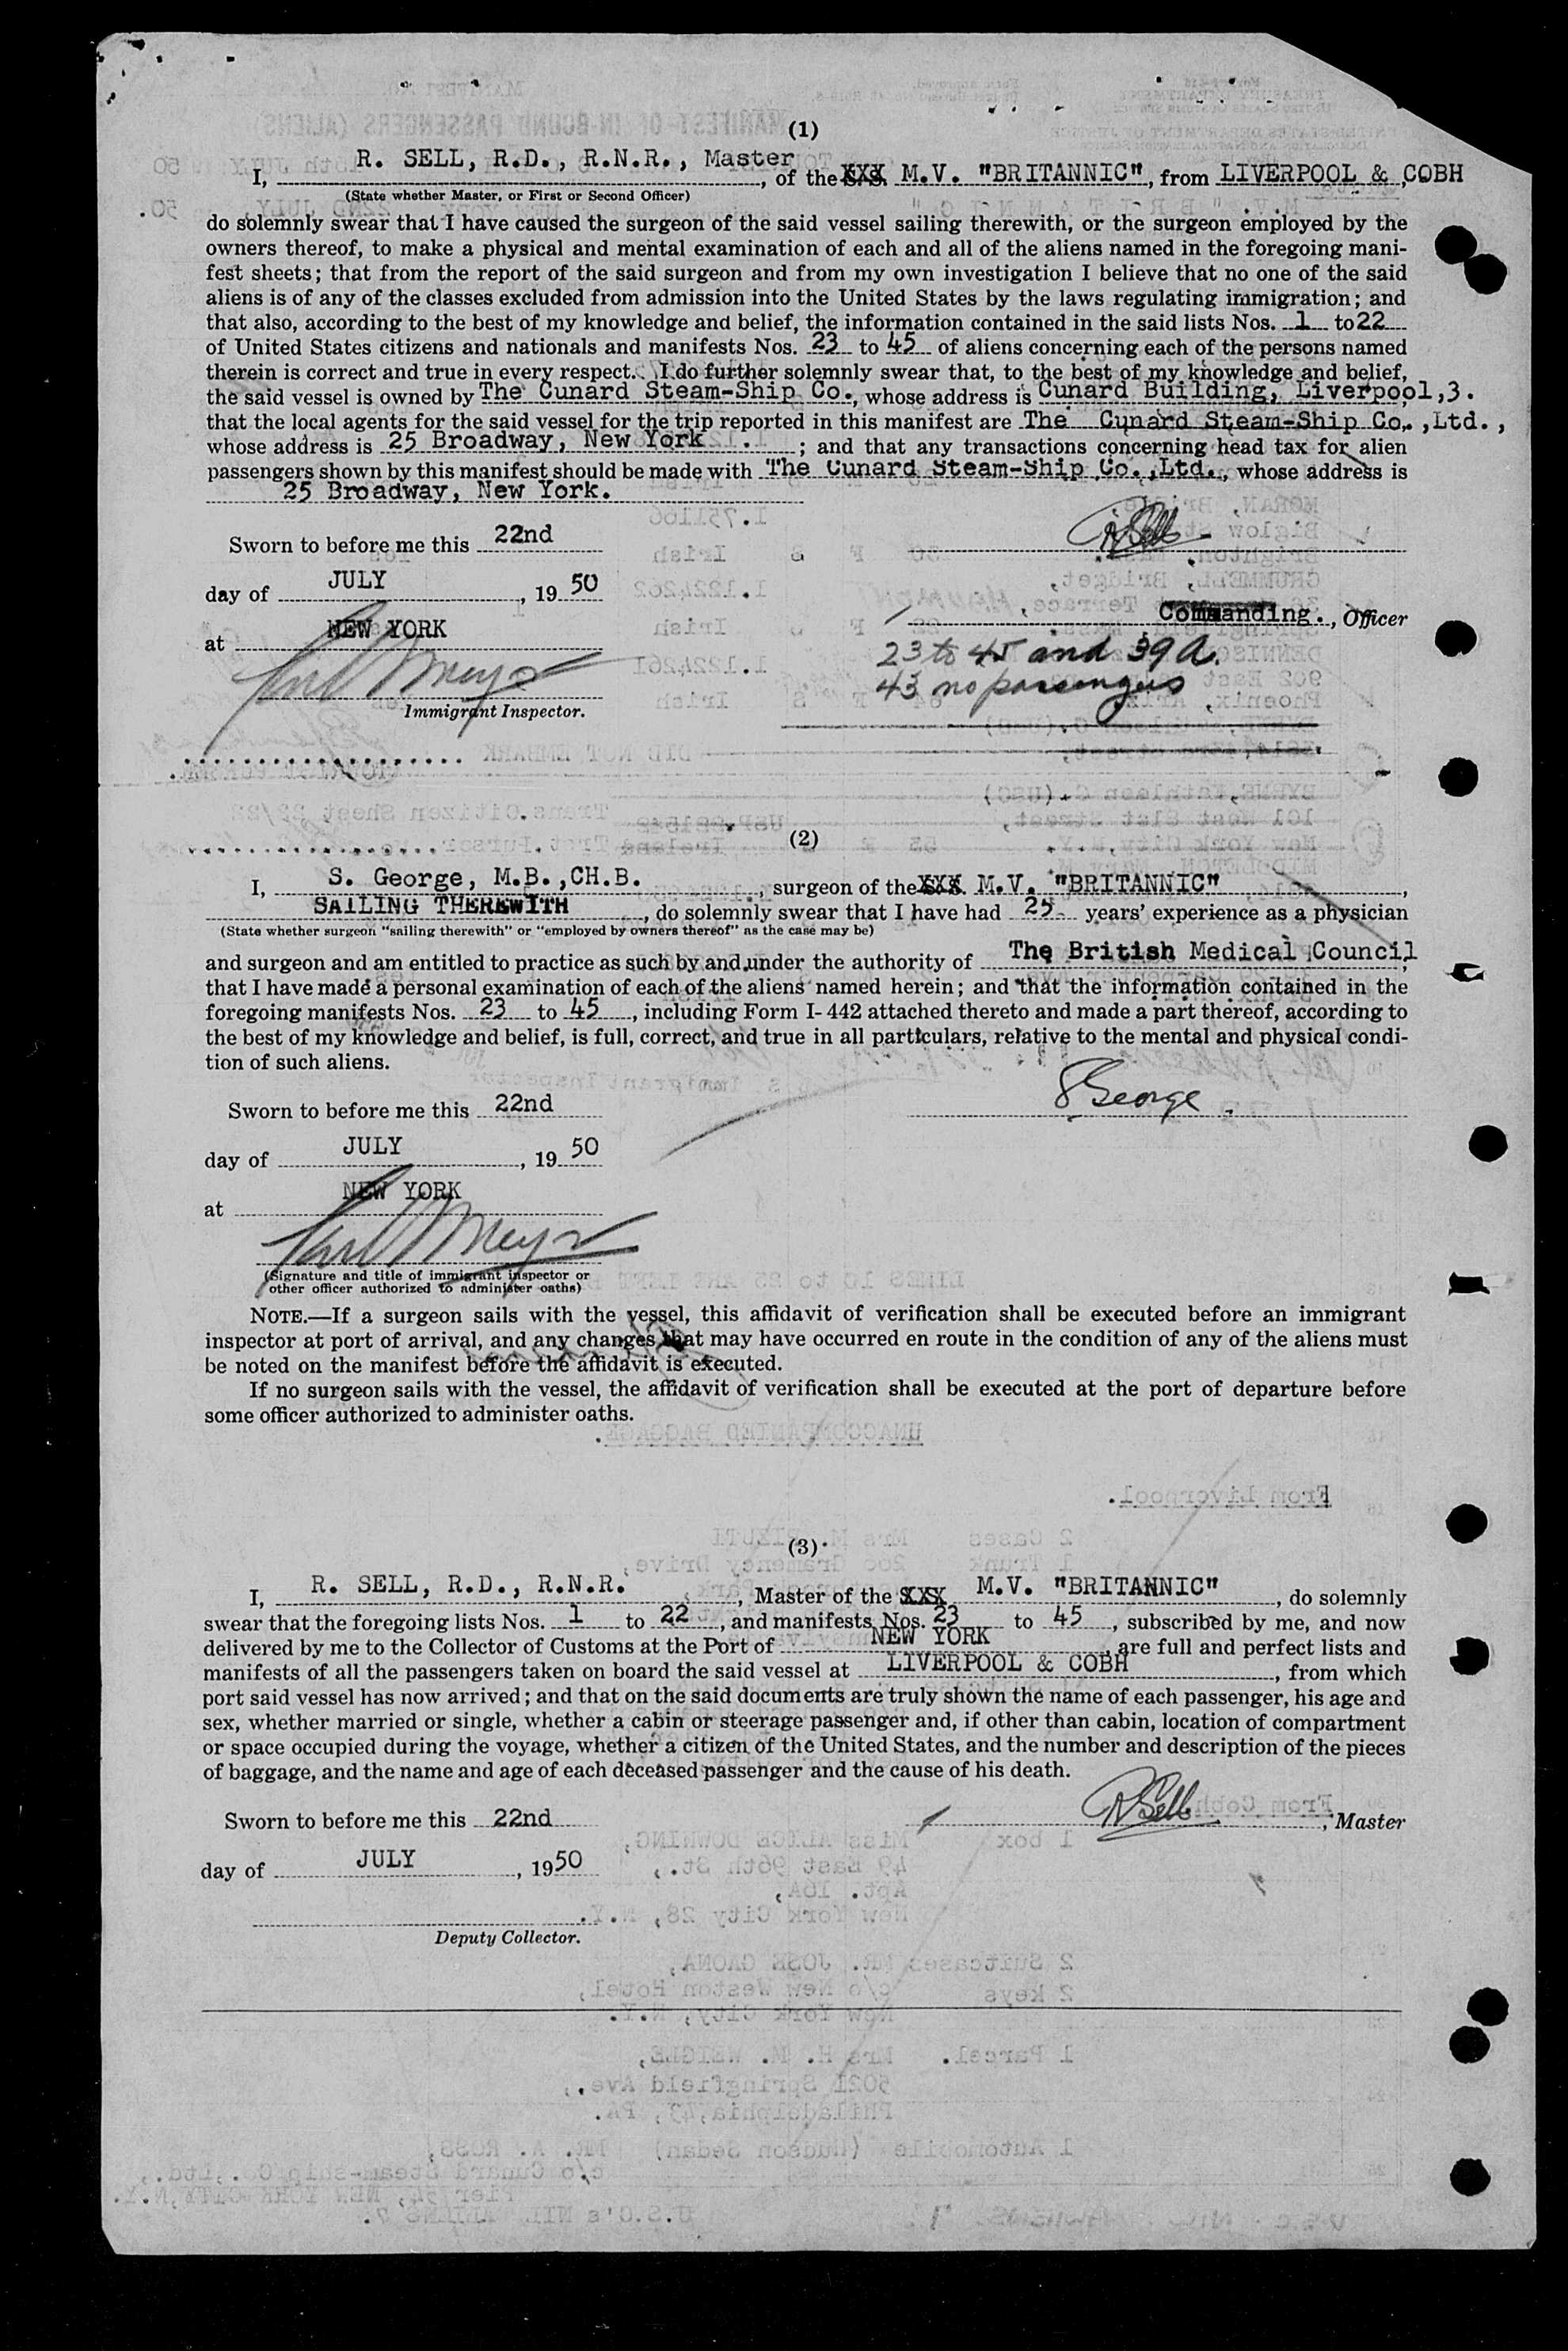 (1)
I, R. SELL, R.D., R.N.R., Master, of the XXX M.V. "BRITANNIC", from LIVERPOOL & COBH
(State whether Master, or First or Second Officer)
do solemnly swear that I have caused the surgeon of the said vessel sailing therewith, or the surgeon employed by the
owners thereof, to make a physical and mental examination of each and all of the aliens named in the foregoing mani-
fest sheets; that from the report of the said surgeon and from my own investigation I believe that no one of the said
aliens is of any of the classes excluded from admission into the United States by the laws regulating immigration; and
that also, according to the best of my knowledge and belief, the information contained in the said lists Nos. 1 to 22
of United States citizens and nationals and manifests Nos. 23 to 45 of aliens concerning each of the persons named
therein is correct and true in every respect. I do further solemnly swear that, to the best of my knowledge and belief,
the said vessel is owned by The Cunard Steam-Ship Co., whose address is Cunard Building, Liverpool,3.
that the local agents for the said vessel for the trip reported in this manifest are The Cunard Steam-Ship Co.,Ltd.,
whose address is 25 Broadway, New York.; and that any transactions concerning head tax for alien
passengers shown by this manifest should be made with The Cunard Steam-Ship Co.,Ltd., whose address is
25 Broadway, New York.
Sworn to before me this 22nd
RSell
day of JULY, 19 50
Commanding., Officer
at NEW YORK
23 to 45 and 39A.
43 no passengers
Karl Meyer
Immigrant Inspector.
(2)
I, S. George, M.B.,CH.B., surgeon of the XXX M.V. "BRITANNIC",
SAILING THEREWITH, do solemnly swear that I have had 25 years' experience as a physician
(State whether surgeon "sailing therewith" or "employed by owners thereof" as the case may be)
and surgeon and am entitled to practice as such by and under the authority of The British Medical Council,
that I have made a personal examination of each of the aliens named herein; and that the information contained in the
foregoing manifests Nos. 23 to 45, including Form I-442 attached thereto and made a part thereof, according to
the best of my knowledge and belief, is full, correct, and true in all particulars, relative to the mental and physical condi-
tion of such aliens.
Sworn to before me this 22nd
S George.
day of JULY, 19 50
at NEW YORK
Karl Meyer
(Signature and title of immigrant inspector or
other officer authorized to administer oaths)
NOTE.—If a surgeon sails with the vessel, this affidavit of verification shall be executed before an immigrant
inspector at port of arrival, and any changes that may have occurred en route in the condition of any of the aliens must
be noted on the manifest before the affidavit is executed.
If no surgeon sails with the vessel, the affidavit of verification shall be executed at the port of departure before
some officer authorized to administer oaths.
(3)
I, R. SELL, R.D., R.N.R., Master of the XXX M.V. "BRITANNIC", do solemnly
swear that the foregoing lists Nos. 1 to 22, and manifests Nos. 23 to 45, subscribed by me, and now
delivered by me to the Collector of Customs at the Port of NEW YORK are full and perfect lists and
manifests of all the passengers taken on board the said vessel at LIVERPOOL & COBH, from which
port said vessel has now arrived; and that on the said documents are truly shown the name of each passenger, his age and
sex, whether married or single, whether a cabin or steerage passenger and, if other than cabin, location of compartment
or space occupied during the voyage, whether a citizen of the United States, and the number and description of the pieces
of baggage, and the name and age of each deceased passenger and the cause of his death.
Sworn to before me this 22nd
RSell, Master
day of JULY, 1950
Deputy Collector.